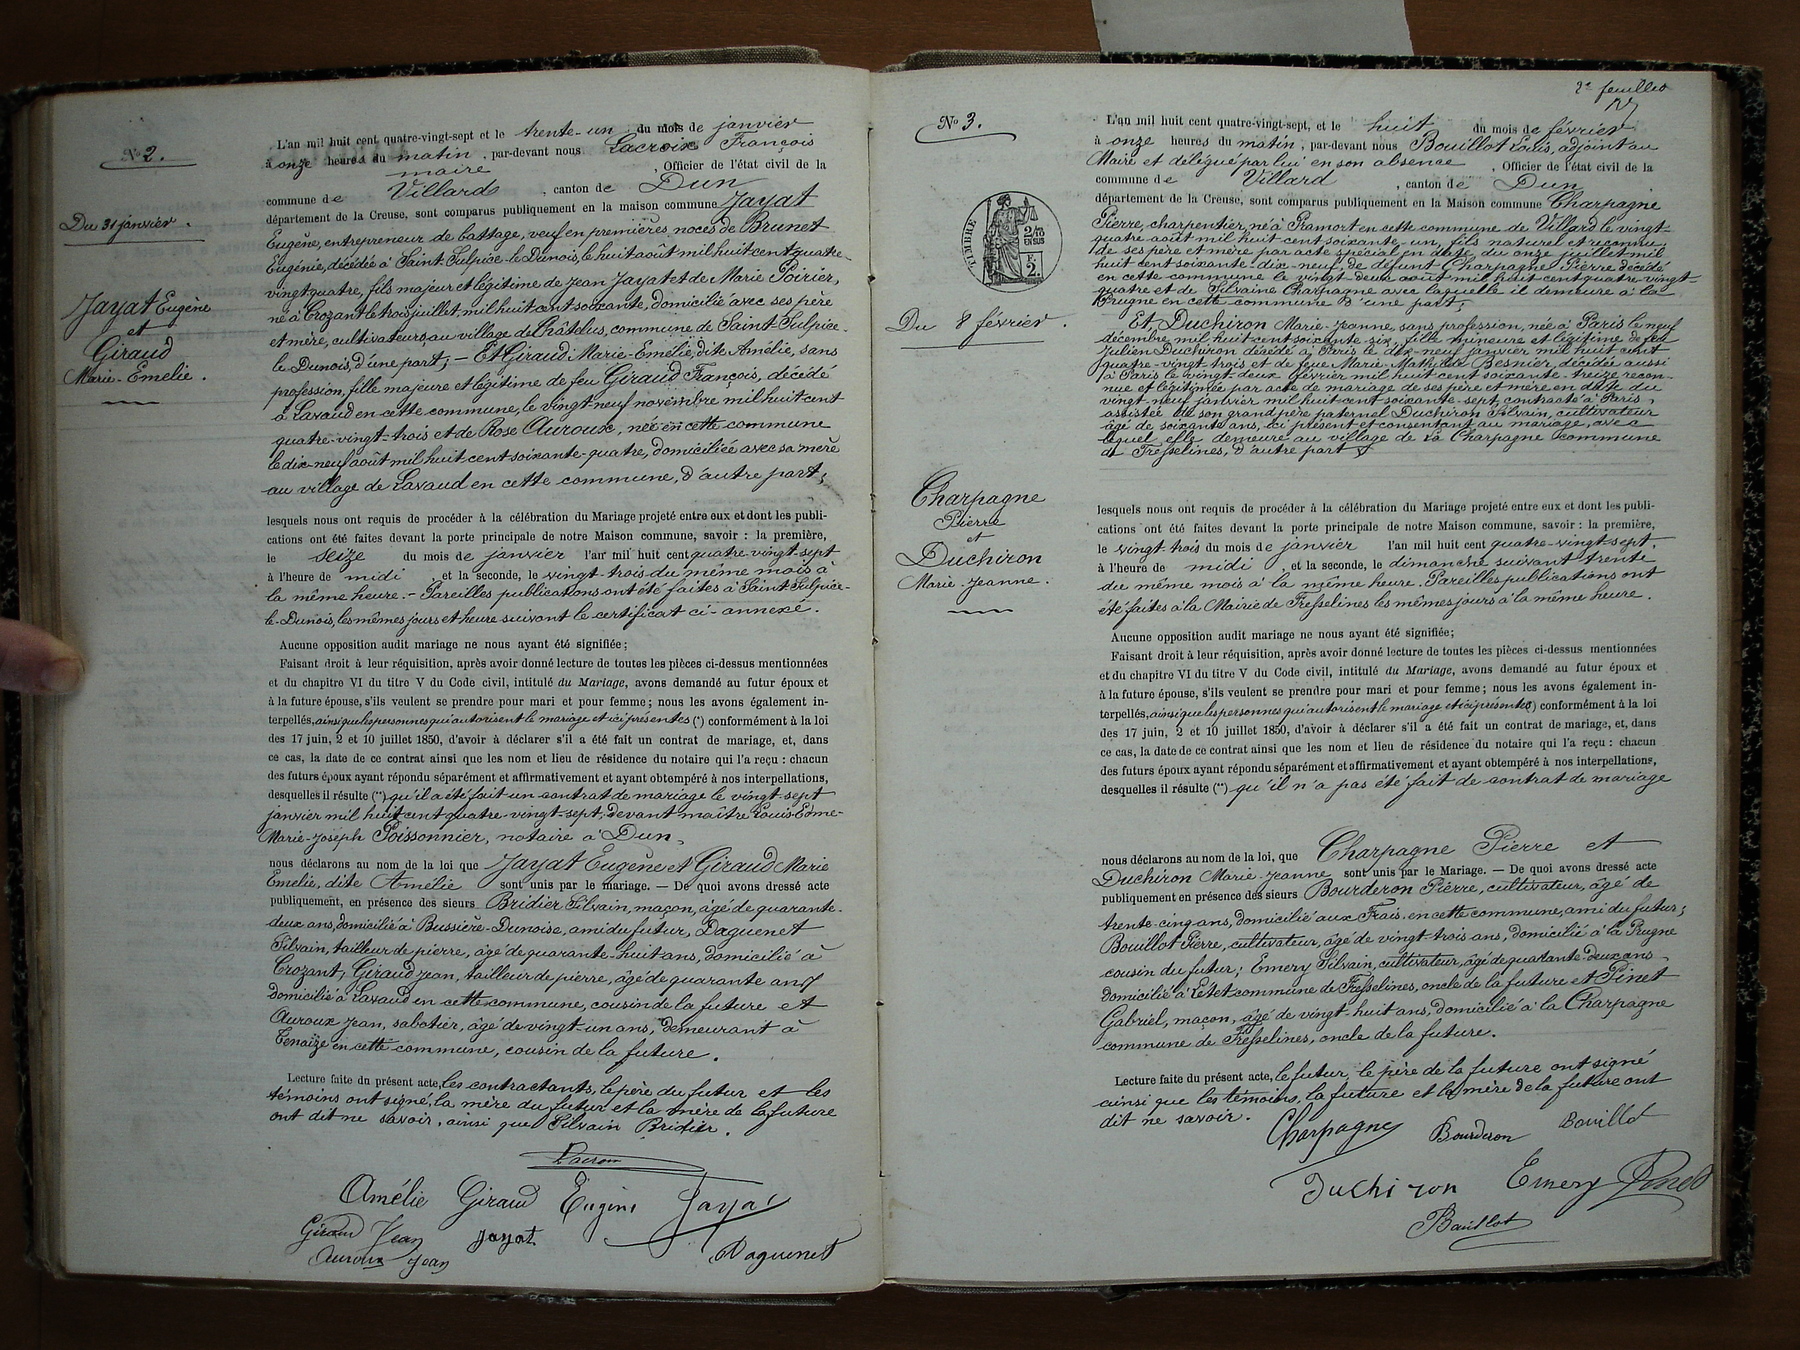 N° 2.
Du 31 janvier.
Jayat Eugène
et
Giraud
Marie-Emelie.
L'an mil huit cent quatre-vingt-sept et le trente-un du mois de janvier
à onze heures du matin, par-devant nous Lacroix François
maire, Officier de l'état civil de la
commune de Villard, canton de Dun
département de la Creuse, sont comparus publiquement en la maison commune Jayat
Eugène, entrepreneur de battage, veuf en premières noces de Brunet
Eugénie, décédée à Saint-Sulpice-le-Dunois, le huit août mil huit cent quatre-
vingt quatre, fils majeur et légitime de Jean Jayat et de Marie Poirier,
né à Crozant le trois juillet, mil huit cent soixante, domicilié avec ses père
et mère, cultivateurs au village de Châtelus, commune de Saint-Sulpice-
le-Dunois, d'une part; — Et Giraud Marie-Emélie, dite Amélie, sans
profession, fille majeure et légitime de feu Giraud François, décédé
à Lavaud en cette commune, le vingt-neuf novembre mil huit cent
quatre-vingt-trois et de Rose Auroux, née en cette commune
le dix-neuf août mil huit cent soixante-quatre, domiciliée avec sa mère
au village de Lavaud en cette commune, d'autre part;
lesquels nous ont requis de procéder à la célébration du Mariage projeté entre eux et dont les publi-
cations ont été faites devant la porte principale de notre Maison commune, savoir : la première,
le seize du mois de janvier l'an mil huit cent quatre-vingt-sept
à l'heure de midi, et la seconde, le vingt-trois du même mois à
la même heure. - Pareilles publications ont été faites à Saint-Sulpice-
le-Dunois, les mêmes jours et heure suivant le certificat ci-annexé.
Aucune opposition audit mariage ne nous ayant été signifiée;
Faisant droit à leur réquisition, après avoir donné lecture de toutes les pièces ci-dessus mentionnées
et du chapitre VI du titre V du Code civil, intitulé du Mariage, avons demandé au futur époux et
à la future épouse, s'ils veulent se prendre pour mari et pour femme; nous les avons également in-
terpellés, ainsi que les personnes qui autorisent le mariage et ici présentes (*) conformément à la loi
des 17 juin, 2 et 10 juillet 1850, d'avoir à déclarer s'il a été fait un contrat de mariage, et, dans
ce cas, la date de ce contrat ainsi que les nom et lieu de résidence du notaire qui l'a reçu : chacun
des futurs époux ayant répondu séparément et affirmativement et ayant obtempéré à nos interpellations,
desquelles il résulte (**) qu'il a été fait un contrat de mariage le vingt-sept
janvier mil huit cent quatre-vingt-sept, devant maître Louis-Edme-
Marie-Joseph Poissonnier, notaire à Dun,
nous déclarons au nom de la loi que Jayat Eugène et Giraud Marie
Emelie, dite Amélie sont unis par le mariage. — De quoi avons dressé acte
publiquement, en présence des sieurs Bridier Silvain, maçon, âgé de quarante-
deux ans, domicilié à Bussière-Dunoise, ami du futur, Daguenet
Silvain, tailleur de pierre, âgé de quarante-huit ans, domicilié à
Crozant; Giraud Jean, tailleur de pierre, âgé de quarante ans
domicilié à Lavaud en cette commune, cousin de la future et
Auroux Jean, sabotier, âgé de vingt-un ans, demeurant à
Tenaize en cette commune, cousin de la future.
Lecture faite du présent acte, les contractants, le père du futur et les
témoins ont signé, la mère du futur et la mère de la future
ont dit ne savoir, ainsi que Silvain Bridier.
Lacroix
Amélie Giraud Eugène Jayat
Giraud Jean Jayat
Auroux Jean Daguenet
2e feuillet
N° 3.
TIMBRE
2/10
EN SUS
F.
2.
Du 8 février.
Charpagne
Pierre
et
Duchiron
Marie-Jeanne.
L'an mil huit cent quatre-vingt-sept, et le huit du mois de février
à onze heures du matin, par-devant nous Bouillot Louis, adjoint au
Maire et délégué par lui en son absence, Officier de l'état civil de la
commune de Villard, canton de Dun
département de la Creuse, sont comparus publiquement en la Maison commune Charpagne
Pierre, charpentier, né à Pramort en cette commune de Villard le vingt-
quatre août mil huit cent soixante-un, fils naturel et reconnu
de ses père et mère par acte spécial en date du onze juillet mil
huit cent soixante-dix-neuf, de défunt Charpagne Pierre décédé
en cette commune le vingt-deux août mil huit cent quatre-vingt-
quatre et de Silvaine Charpagne avec laquelle il demeure à la
Prugne en cette commune d'une part;
Et, Duchiron Marie-Jeanne, sans profession, née à Paris le neuf
décembre mil huit cent soixante-six, fille mineure et légitime de feu
Julien Duchiron décédé à Paris le dix-neuf janvier mil huit cent
quatre-vingt trois et de feue Marie-Mathilde Besnier, décédée aussi
à Paris le vingt-deux février mil huit cent soixante-treize recon-
nue et légitimée par acte de mariage de ses père et mère en date du
vingt-neuf janvier mil huit cent soixante-sept, contracté à Paris,
assistée de son grand père paternel Duchiron Silvain, cultivateur
âgé de soixante ans, ici présent et consentant au mariage, avec
lequel elle demeure au village de La Charpagne commune
de Fresselines, d'autre part;
lesquels nous ont requis de procéder à la célébration du Mariage projeté entre eux et dont les publi-
cations ont été faites devant la porte principale de notre Maison commune, savoir : la première,
le vingt trois du mois de janvier l'an mil huit cent quatre-vingt-sept,
à l'heure de midi, et la seconde, le dimanche suivant trente
du même mois à la même heure. Pareilles publications ont
été faites à la Mairie de Fresselines les mêmes jours à la même heure.
Aucune opposition audit mariage ne nous ayant été signifiée;
Faisant droit à leur réquisition, après avoir donné lecture de toutes les pièces ci-dessus mentionnées
et du chapitre VI du titre V du Code civil, intitulé du Mariage, avons demandé au futur époux et
à la future épouse, s'ils veulent se prendre pour mari et pour femme; nous les avons également in-
terpellés, ainsi que les personnes qui autorisent le mariage et ici présentes (*) conformément à la loi
des 17 juin, 2 et 10 juillet 1850, d'avoir à déclarer s'il a été fait un contrat de mariage, et, dans
ce cas, la date de ce contrat ainsi que les nom et lieu de résidence du notaire qui l'a reçu : chacun
des futurs époux ayant répondu séparément et affirmativement et ayant obtempéré à nos interpellations,
desquelles il résulte (**) qu'il n'a pas été fait de contrat de mariage
nous déclarons au nom de la loi, que Charpagne Pierre et
Duchiron Marie-Jeanne sont unis par le Mariage. — De quoi avons dressé acte
publiquement en présence des sieurs Bourderon Pierre, cultivateur, âgé de
trente-cinq ans, domicilié aux Frais, en cette commune, ami du futur;
Bouillot Pierre, cultivateur, âgé de vingt-trois ans, domicilié à la Prugne
cousin du futur; Emery Silvain, cultivateur, âgé de quarante-deux ans
domicilié à Létet commune de Fresselines, oncle de la future et Pinet
Gabriel, maçon, âgé de vingt-huit ans, domicilié à la Charpagne
commune de Fresselines, oncle de la future.
Lecture faite du présent acte, le futur, le père de la future ont signé
ainsi que les témoins, la future et la mère de la future ont
dit ne savoir.
Charpagne Bourderon Bouillot
Duchiron Emery Pinet
Bouillot